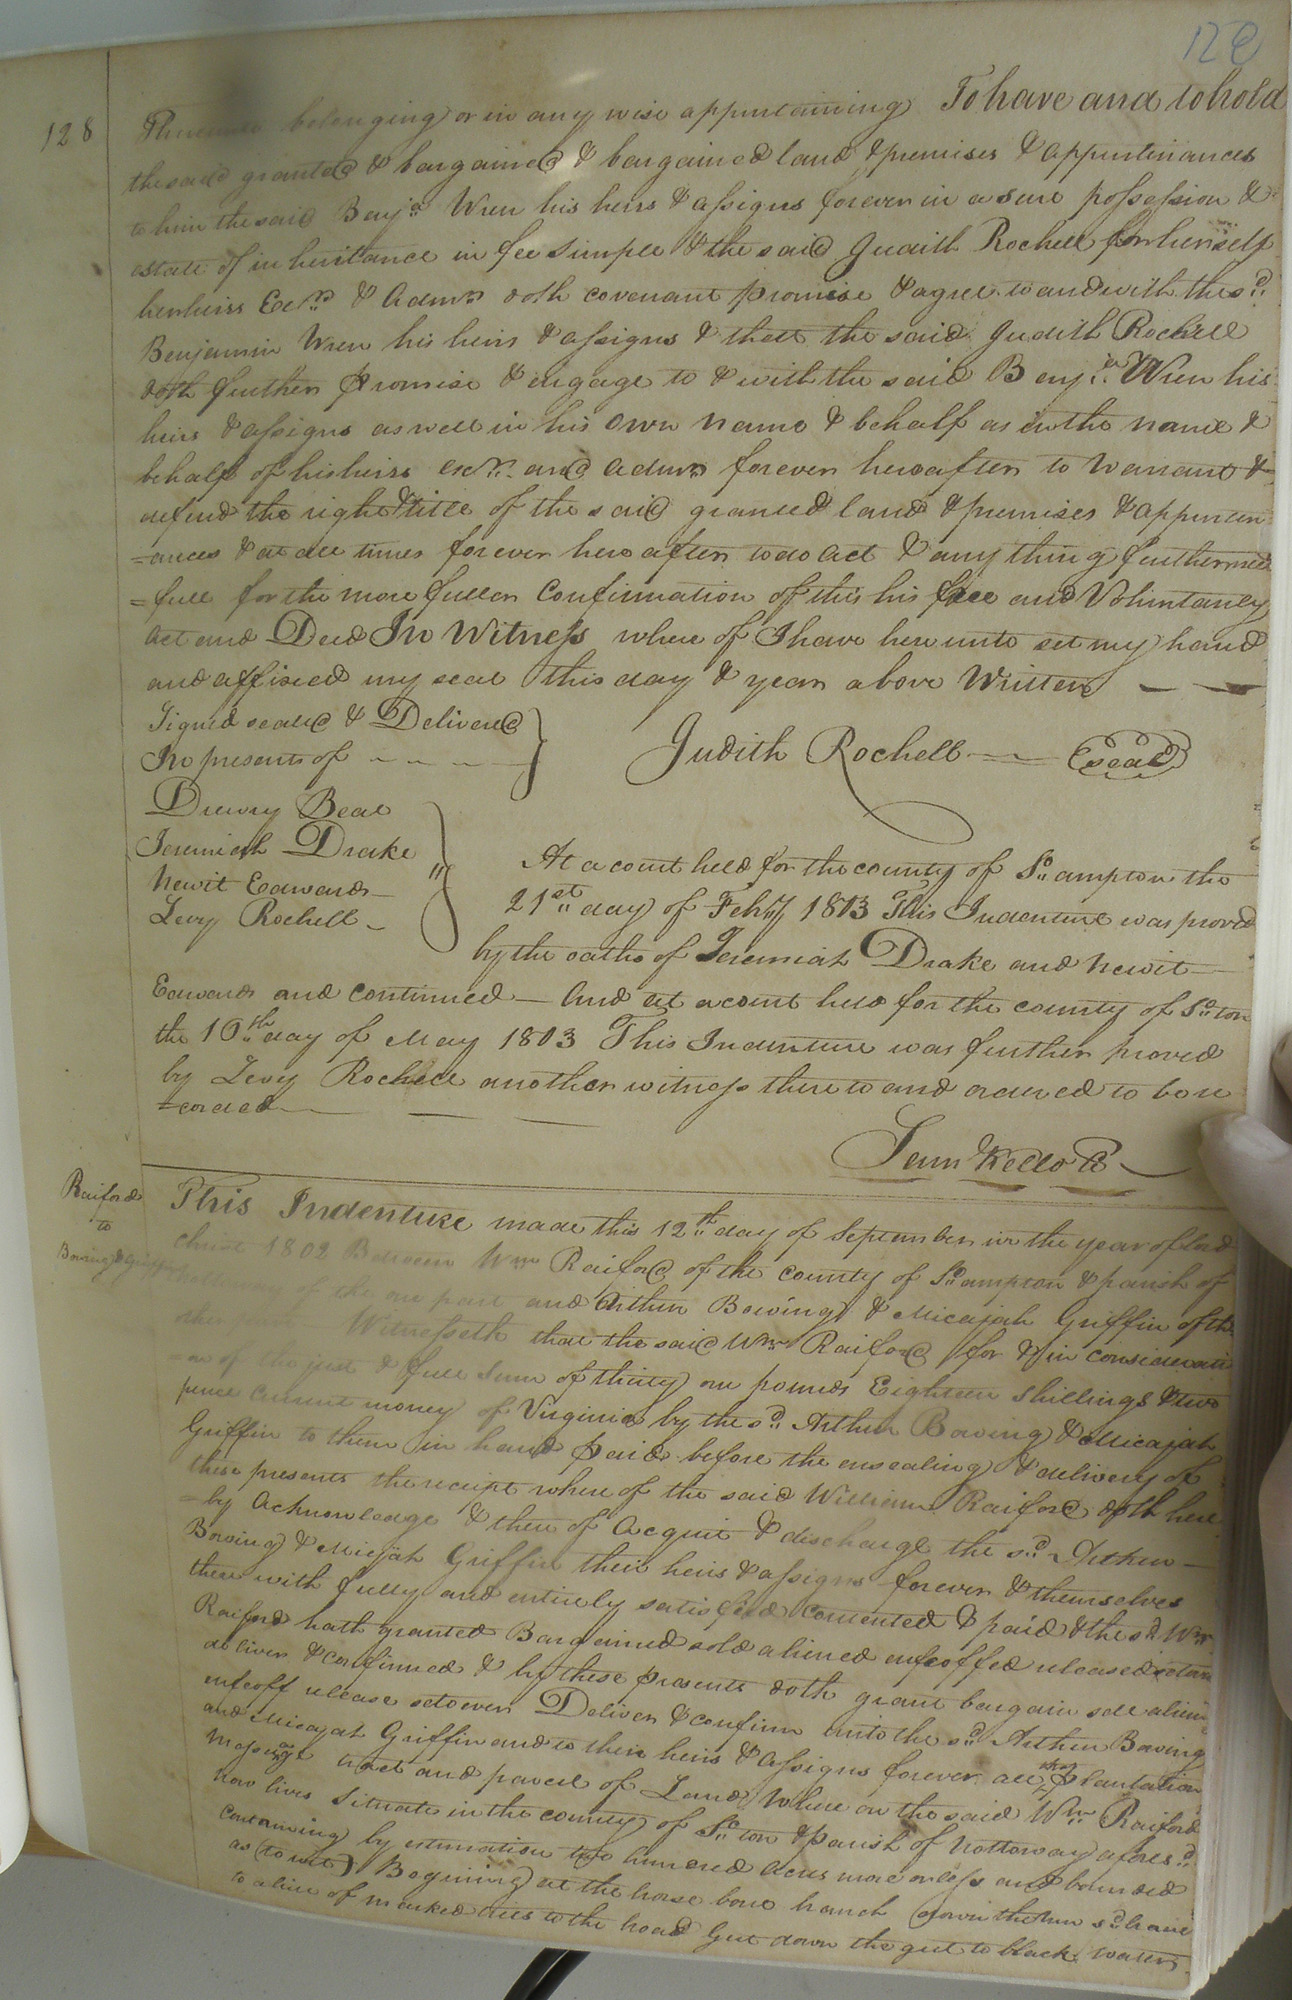 128
128
Thereunto belonging or in any wise appurtaining To have and to hold
the said granted & bargained & bargained land & premises & appurtinances
to him the said Benjn. Wren his heirs & assigns forever in a sure possession &
estate of inheritance in fee simple & the said Judith Rochell for herself
her heirs Exrs. & Admrs doth covenant promise & agree to and with the sd.
Benjamin Wren his heirs & assigns & that the said Judith Rochell
doth further promise & engage to & with the said Benjn. Wren his
heirs & assigns as well in his own name & behalf as in the name &
behalf of his heirs exrs. and admrs forever hereafter to Warrant &
defend the right & title of the said granted land & premises & appurten
=ances & at all times forever hereafter to do act & any thing further need
=full for the more fuller Confirmation of this his free and Voluntary
act and Deed In Witness where of I have here unto set my hand
and affixed my seal this day & year above Written
Signed sealed & Delivered
In presents of
Judith Rochell (seal)
Drewry Beal
Jeremiah Drake
Newit Edwards
Levy Rochell
At a court held for the county of So.ampton the
21st. day of Feby 1803 This Indenture was proved
by the oaths of Jeremiah Drake and Newit
Edwards and continued — And at a court held for the county of So.ton
the 16th. day of May 1803 This Indenture was further proved
by Levy Rochell another witness there to and ordered to be re
=corded
Saml Kello Cl
Raiford
to
Bowing & Griffin
This Indenture made this 12th. day of September in the year of lord
christ 1802 Between Wm Raiford of the county of So.ampton & parish of
Nottoway of the one part and Arthur Bowing & Micajah Griffin of the
other Witnesseth that the said Wm. Raiford for & in considerati
on of the just & full Sum of thirty one pounds Eighteen Shillings & two
pence current money of Virginia by the sd. Arthur Bowing & Micajah
Griffin to them in hand paid before the ensealing & delivery of
these presents the receipt where of the said William Raiford doth here
=by Acknowledge & there of Acquit & discharge the sd. Arthur
Bowing & Micjah Griffin their heirs & assigns forever & themselves
there with fully and entirely satisfied contented & paid & the sd. Wm.
Raiford hath granted Bargained sold aliened enfeoffed released
deliver & confirmed & by these presents doth grant bargain sell alien
enfeoff release setover Deliver & confirm unto the sd. Arthur Bowing
and Micajah Griffin and to their heirs & assigns forever all that plantation
tract and parcel of Land where on the said Wm. Raiford
now lives Situate in the county of So.ton & parish of Nottoway afores.d
containing by estimation two hundred Acres more or less and bounded
as (to wit) Begining at the horse bone branch down the sd. branch
to a line of marked trees to the head Gut down the gut to black water